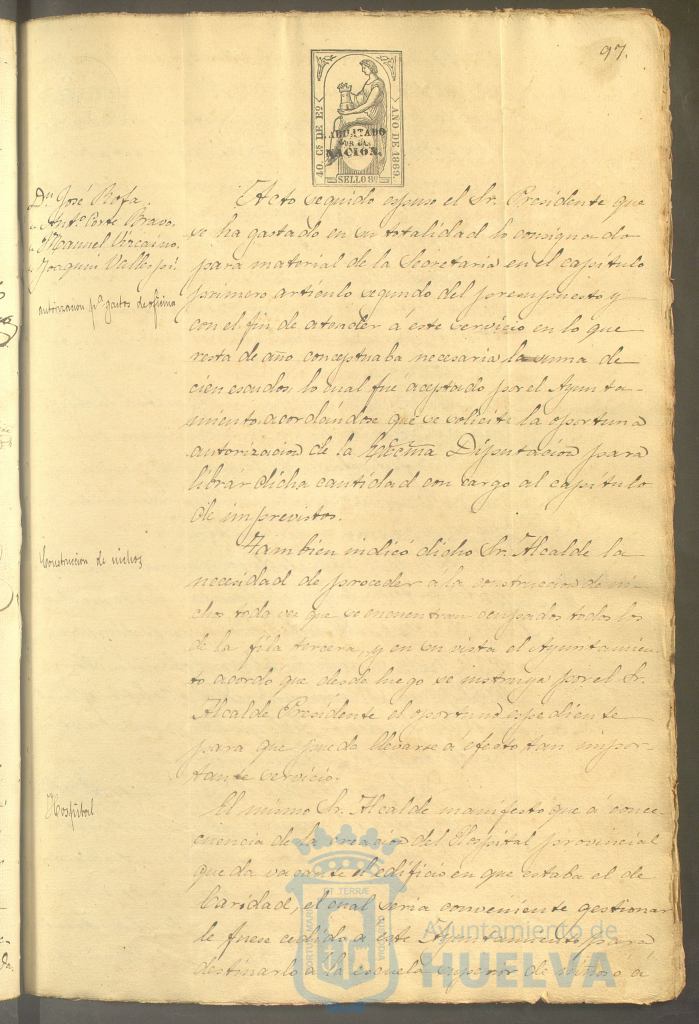 97.
40. Cs DE Eo
AÑO DE 1869
HABILITADO
POR LA
NACION.
SELLO 8º
Dn José Rofa.
" Antº Corte Bravo.
" Manuel Vizcaino.
" Joaquin Vallespi.
autorizacion pª gastos de oficina
Acto seguido espuso el Sr. Presidente que
se ha gastado en su totalidad lo consignado
para material de la Secretaria en el capitulo
primero articulo segundo del presupuesto y
con el fin de atender á este servicio en lo que
resta de año conceptuaba necesaria la suma de
cien escudos lo cual fué aceptado por el Ayunta-
miento acordandose que se solicite la oportuna
autorizacion de la Diputacion para
librar dicha cantidad con cargo al capitulo
de imprevistos.
Construcion de nichos
Tambien indicó dicho Sr. Alcalde la
necesidad de proceder á la construcion de ni-
chos toda vez que se encuentran ocupados todos los
de la fila tercera, y en su vista el Ayuntamien-
to acordó que desde luego se instruya por el Sr.
Alcalde Presidente el oportuno espediente
para que pueda llevarse á efecto tan impor-
tante servicio.
Hospital
El mismo Sr. Alcalde manifesto que á conse-
cuencia de la creacion del Hospital provincial
queda vacante el edificio en que estaba el de
Caridad, el cual seria conveniente gestionar
le fuese cedido á este Ayuntamiento para
destinarlo á la escuela superior de niños á
PORTUS MARIS ET TERRÆ CUSTODIA
Ayuntamiento de
HUELVA